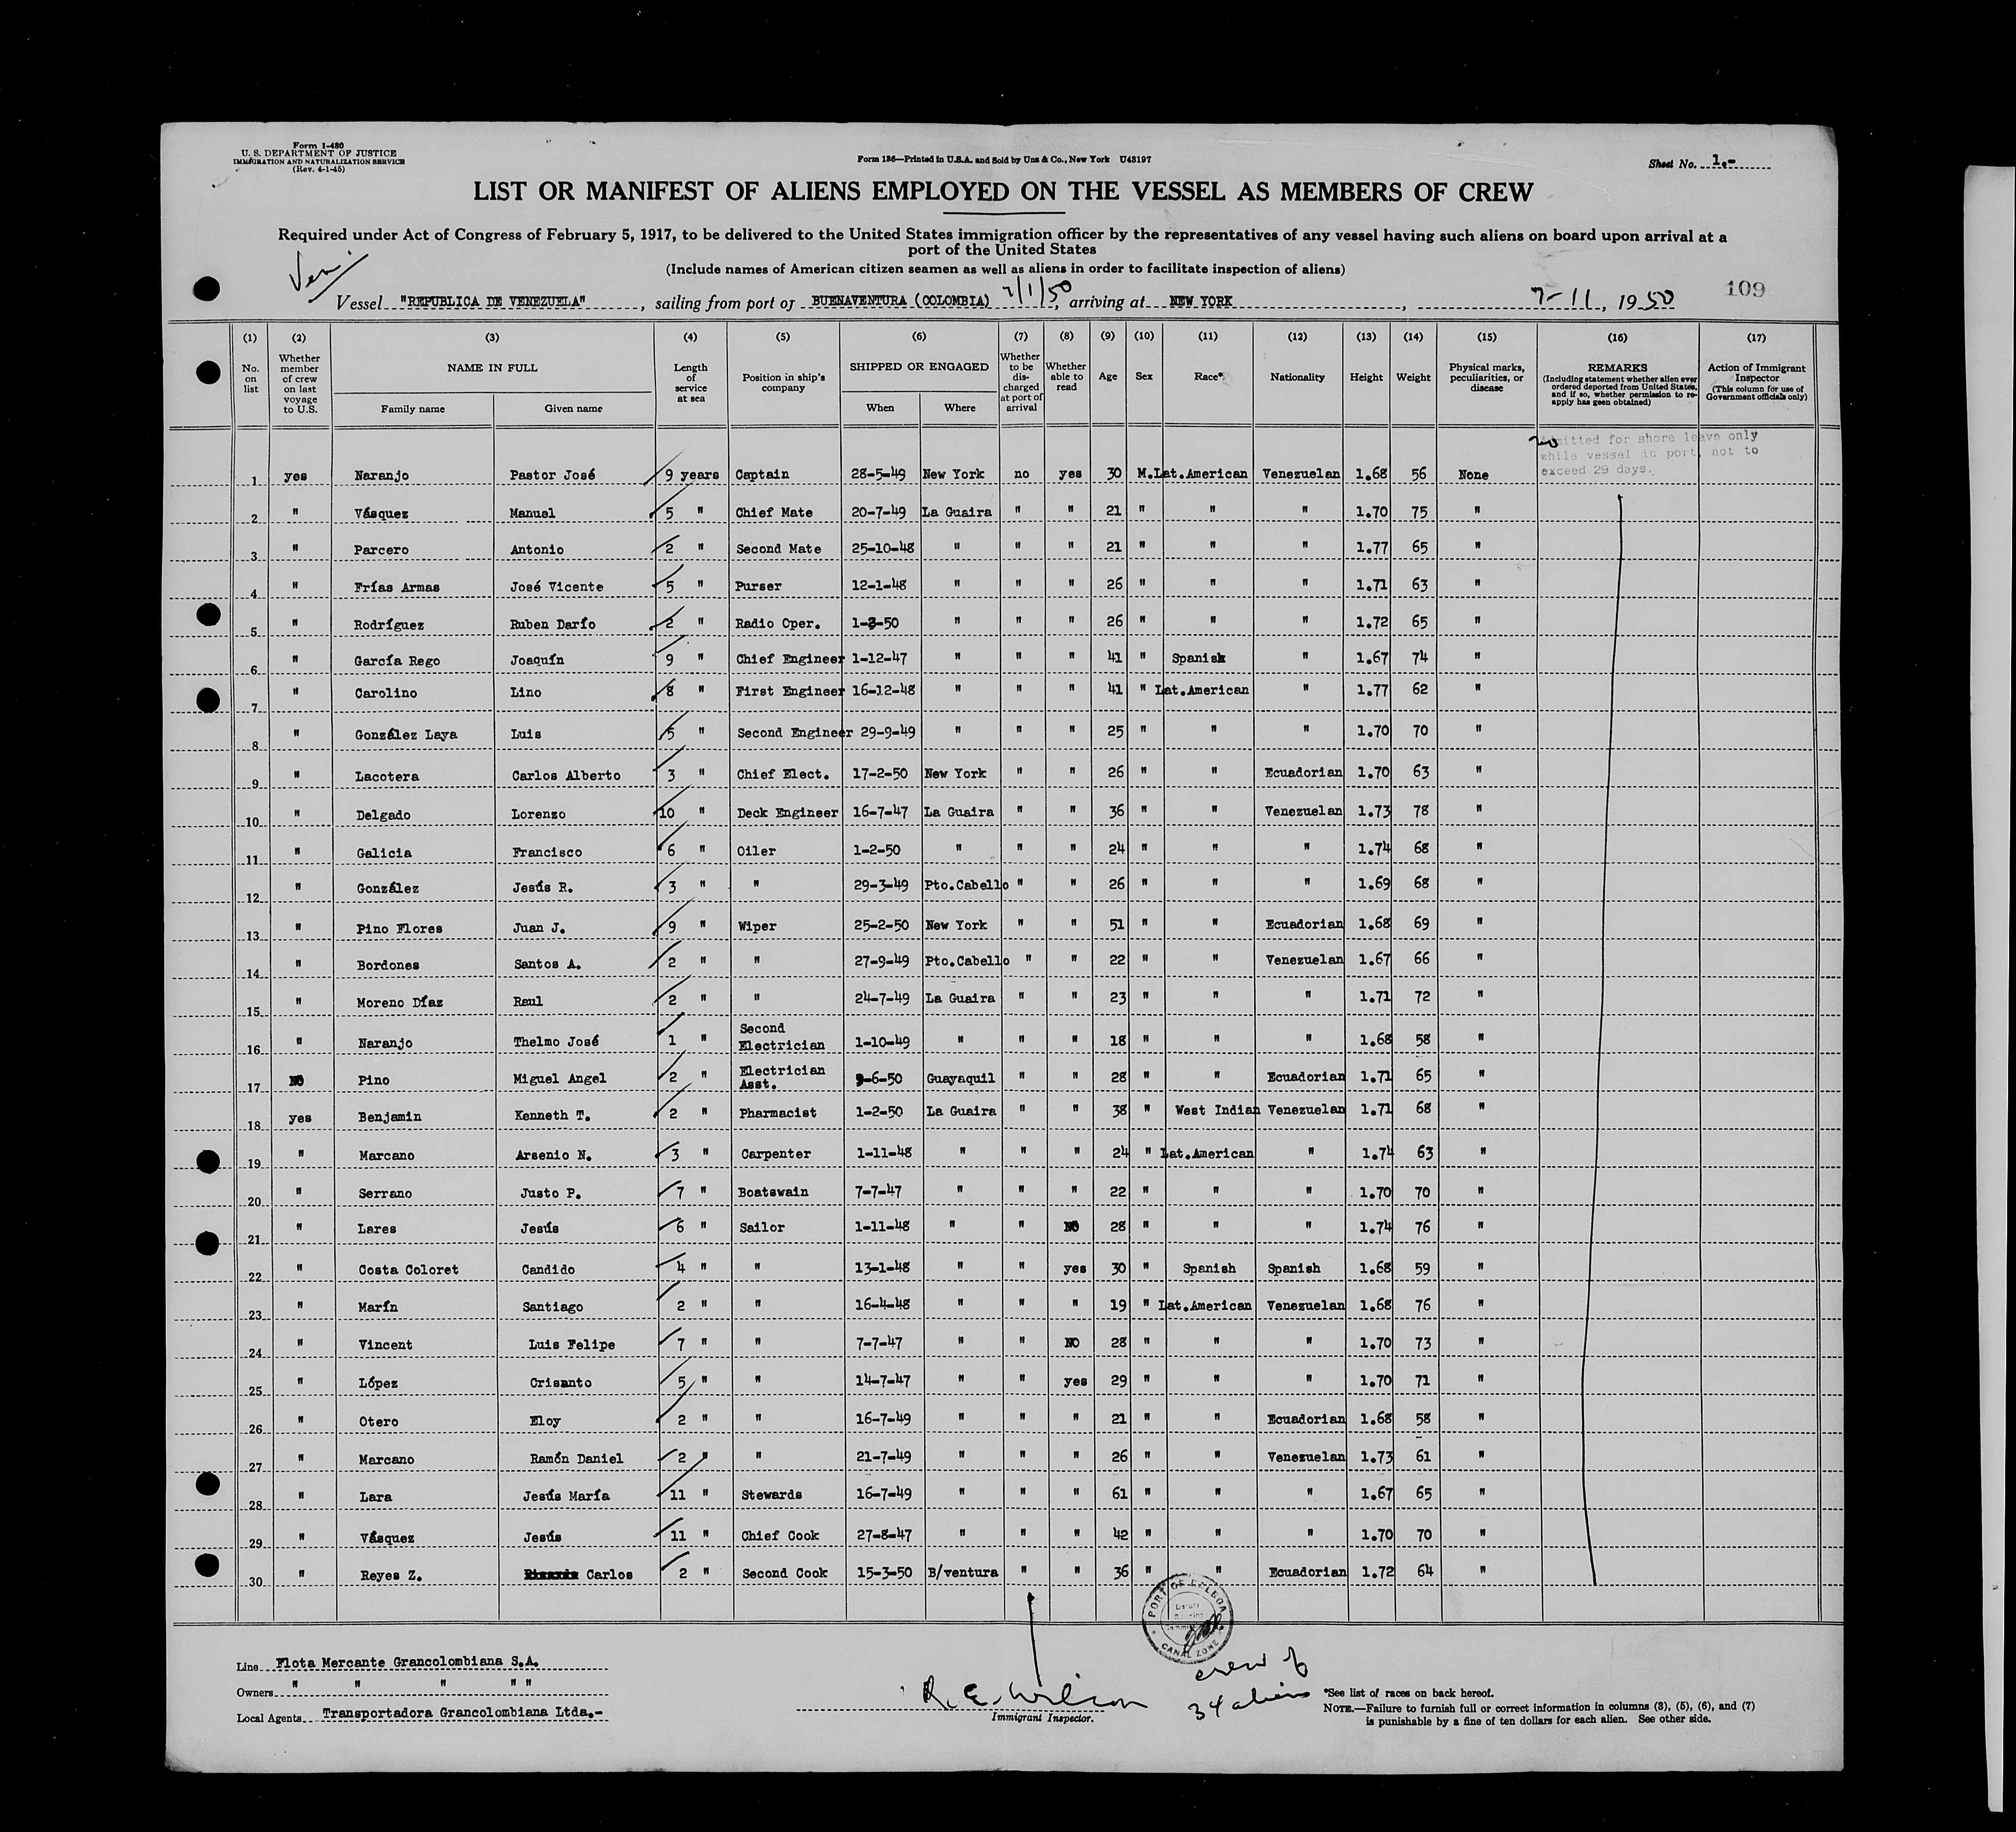 Form I-480
U. S. DEPARTMENT OF JUSTICE
IMMIGRATION AND NATURALIZATION SERVICE
(Rev. 4-1-45)
Form 136—Printed in U.S.A. and Sold by Unz & Co., New York U43197
Sheet No. 1.-
LIST OR MANIFEST OF ALIENS EMPLOYED ON THE VESSEL AS MEMBERS OF CREW
Required under Act of Congress of February 5, 1917, to be delivered to the United States immigration officer by the representatives of any vessel having such aliens on board upon arrival at a
port of the United States
(Include names of American citizen seamen as well as aliens in order to facilitate inspection of aliens)
Ven.
Vessel "REPUBLICA DE VENEZUELA", sailing from port of BUENAVENTURA (COLOMBIA) 7/1/50, arriving at NEW YORK, 7-11, 1950 109
(1) (2) (3) (4) (5) (6) (7) (8) (9) (10) (11) (12) (13) (14) (15) (16) (17)
No. on list
Whether member of crew on last voyage to U.S.
NAME IN FULL
Family name
Given name
Length of service at sea
Position in ship's company
SHIPPED OR ENGAGED
When
Where
Whether to be discharged at port of arrival
Whether able to read
Age
Sex
Race*
Nationality
Height
Weight
Physical marks, peculiarities, or disease
REMARKS
(Including statement whether alien ever ordered deported from United States, and if so, whether permission to re-apply has geen obtained)
Action of Immigrant Inspector
(This column for use of Government officials only)
Admitted for shore leave only
while vessel in port, not to
exceed 29 days.
1 yes Naranjo Pastor José 9 years Captain 28-5-49 New York no yes 30 M. Lat.American Venezuelan 1.68 56 None
2 " Vásquez Manuel 5 " Chief Mate 20-7-49 La Guaira " " 21 " " " 1.70 75 "
3 " Parcero Antonio 2 " Second Mate 25-10-48 " " " 21 " " " 1.77 65 "
4 " Frías Armas José Vicente 5 " Purser 12-1-48 " " " 26 " " " 1.71 63 "
5 " Rodríguez Ruben Darío 2 " Radio Oper. 1-3-50 " " " 26 " " " 1.72 65 "
6 " García Rego Joaquín 9 " Chief Engineer 1-12-47 " " " 41 " Spanish " 1.67 74 "
7 " Carolino Lino 8 " First Engineer 16-12-48 " " " 41 " Lat.American " 1.77 62 "
8 " González Laya Luis 5 " Second Engineer 29-9-49 " " " 25 " " " 1.70 70 "
9 " Lacotera Carlos Alberto 3 " Chief Elect. 17-2-50 New York " " 26 " " Ecuadorian 1.70 63 "
10 " Delgado Lorenzo 10 " Deck Engineer 16-7-47 La Guaira " " 36 " " Venezuelan 1.73 78 "
11 " Galicia Francisco 6 " Oiler 1-2-50 " " " 24 " " " 1.74 68 "
12 " González Jesús R. 3 " " 29-3-49 Pto.Cabello " " 26 " " " 1.69 68 "
13 " Pino Flores Juan J. 9 " Wiper 25-2-50 New York " " 51 " " Ecuadorian 1.68 69 "
14 " Bordones Santos A. 2 " " 27-9-49 Pto.Cabello " " 22 " " Venezuelan 1.67 66 "
15 " Moreno Díaz Raul 2 " " 24-7-49 La Guaira " " 23 " " " 1.71 72 "
16 " Naranjo Thelmo José 1 " Second Electrician 1-10-49 " " " 18 " " " 1.68 58 "
17 NO Pino Miguel Angel 2 " Electrician Asst. 9-6-50 Guayaquil " " 28 " " Ecuadorian 1.71 65 "
18 yes Benjamin Kenneth T. 2 " Pharmacist 1-2-50 La Guaira " " 38 " West Indian Venezuelan 1.71 68 "
19 " Marcano Arsenio N. 3 " Carpenter 1-11-48 " " " 24 " Lat.American " 1.74 63 "
20 " Serrano Justo P. 7 " Boatswain 7-7-47 " " " 22 " " " 1.70 70 "
21 " Lares Jesús 6 " Sailor 1-11-48 " " NO 28 " " " 1.74 76 "
22 " Costa Coloret Candido 4 " " 13-1-48 " " yes 30 " Spanish Spanish 1.68 59 "
23 " Marín Santiago 2 " " 16-4-48 " " " 19 " Lat.American Venezuelan 1.68 76 "
24 " Vincent Luis Felipe 7 " " 7-7-47 " " NO 28 " " " 1.70 73 "
25 " López Crisanto 5 " " 14-7-47 " " yes 29 " " " 1.70 71 "
26 " Otero Eloy 2 " " 16-7-49 " " " 21 " " Ecuadorian 1.68 58 "
27 " Marcano Ramón Daniel 2 " " 21-7-49 " " " 26 " " Venezuelan 1.73 61 "
28 " Lara Jesús María 11 " Stewards 16-7-49 " " " 61 " " " 1.67 65 "
29 " Vásquez Jesús 11 " Chief Cook 27-8-47 " " " 42 " " " 1.70 70 "
30 " Reyes Z. Carlos 2 " Second Cook 15-3-50 B/ventura " " 36 " " Ecuadorian 1.72 64 "
PORT OF BALBOA
CANAL ZONE
Line Flota Mercante Grancolombiana S.A.
Owners " " " " "
Local Agents Transportadora Grancolombiana Ltda.-
R. E. Wilson
Immigrant Inspector.
crew of
34 aliens
*See list of races on back hereof.
NOTE.—Failure to furnish full or correct information in columns (3), (5), (6), and (7)
is punishable by a fine of ten dollars for each alien. See other side.